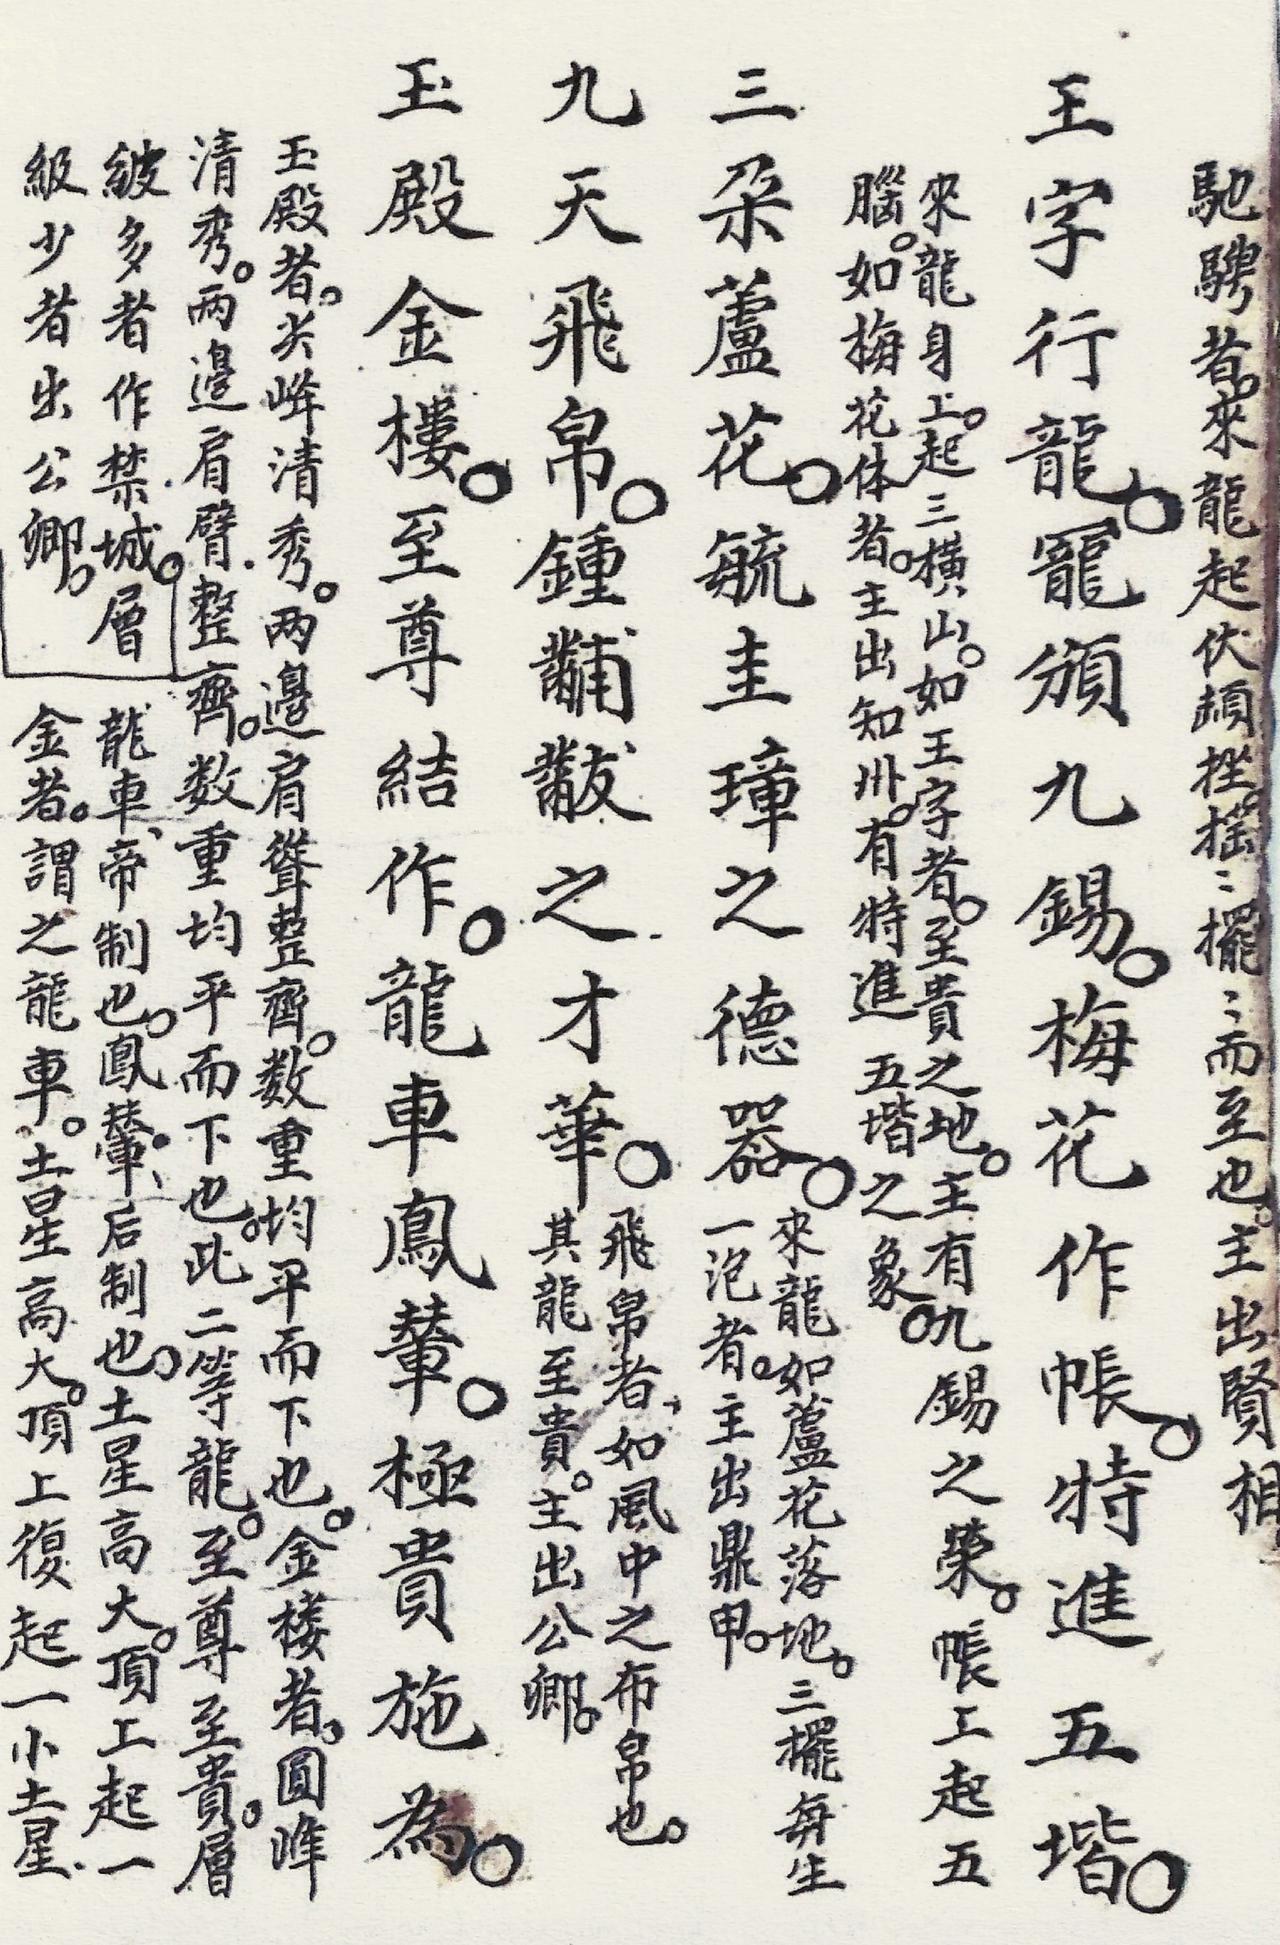 馳騁者。來龍起伏頓挫。搖〻擺〻而至也。主出賢相
王字行龍。寵頒九錫。梅花作帳。特進五堦。
來龍身上。起三橫山。如王字者。至貴之地。主有九錫之榮。帳上起五
腦。如梅花体者。主出知州。有特進五堦之象。
三朶蘆花。毓圭璋之德器。
來龍如蘆花落地。三擺每生
一泡者。主出鼎甲。
九天飛帛。鍾黼黻之才華。
飛帛者、如風中之布帛也。
其龍至貴。主出公卿。
玉殿金樓。至尊結作。龍車鳳輦。極貴施為。
玉殿者。尖峰清秀。两邊肩聳整齊。数重均平而下也。金楼者。圓峰
清秀。两邊肩臂整齊。数重均平而下也。此二等龍。至尊至貴。層
級多者作禁城。層
級少者出公卿。
龍車、帝制也。鳳輦、后制也。土星高大。頂上起一
金者。謂之龍車。土星高大。頂上復起一小土星